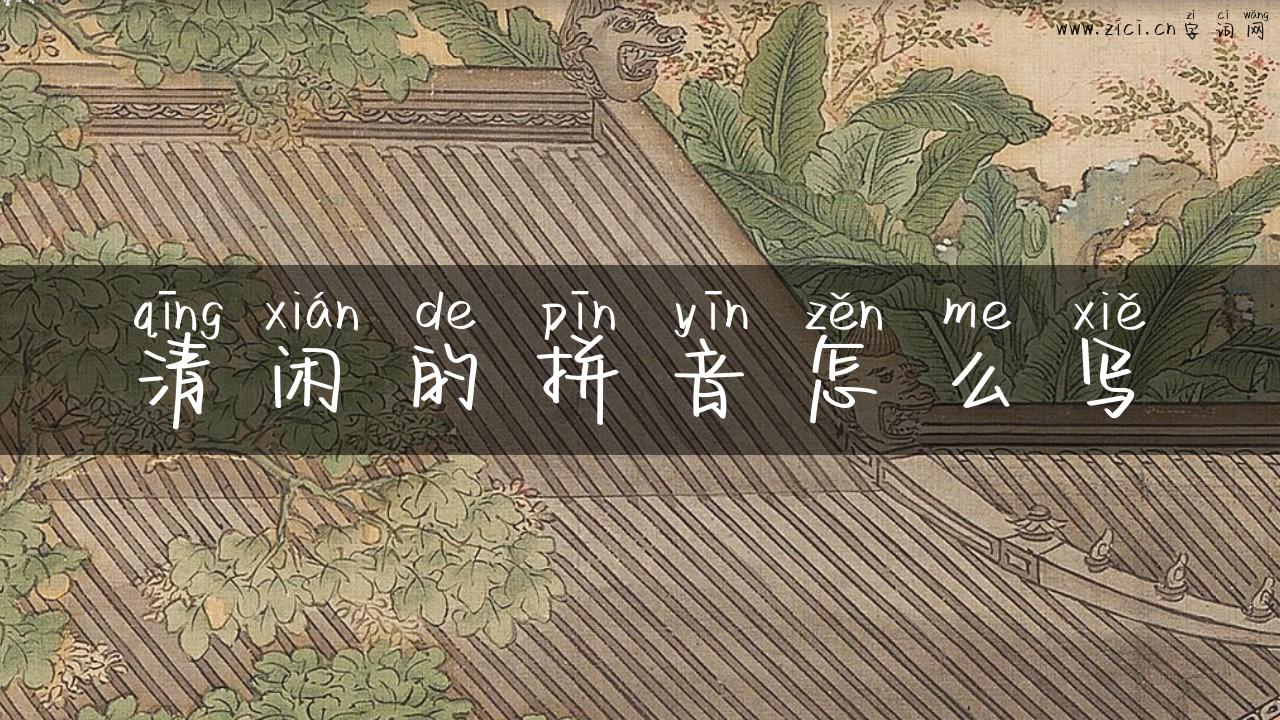 zì cí wǎng
www.zici.cn 字词网
qīng xián de pīn yīn zěn me xiě
清闲的拼音怎么写